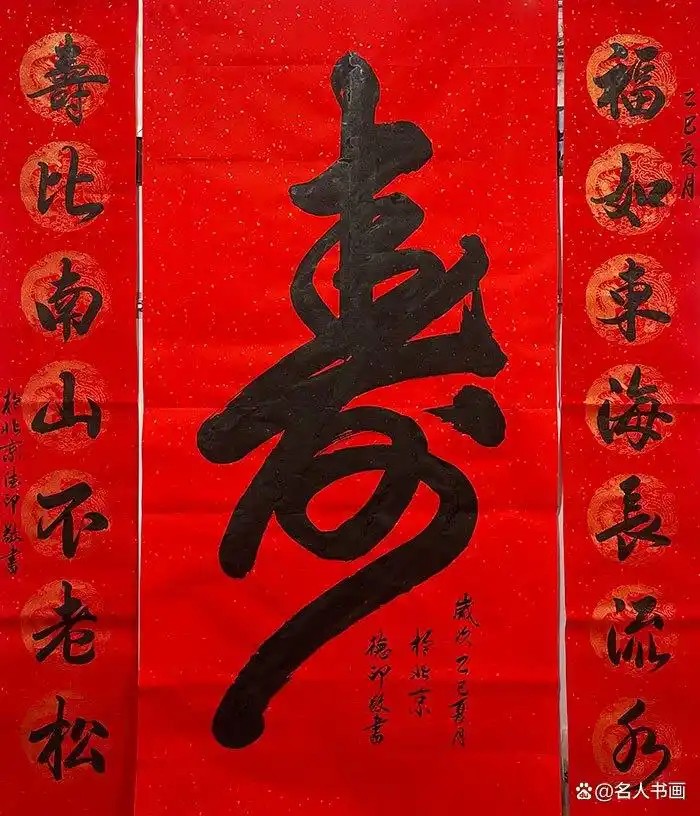 福如東海長流水
乙巳夏月
壽
歲次乙巳夏月
於北京
德印敬書
壽比南山不老松
於北京德印敬書
@名人书画